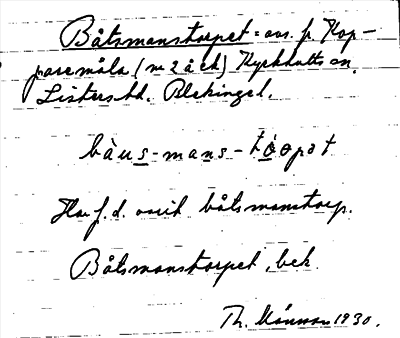 Båtsmanstorpet = avs. p. Kop-
paremåla (nr 2 å ek) Kyrkhults sn.
Listers hd. Blekinge l.
bàus-mans-tòopət
Har f.d. varit båtsmanstorp.
Båtsmanstorpet, beb.
Th. 1930.